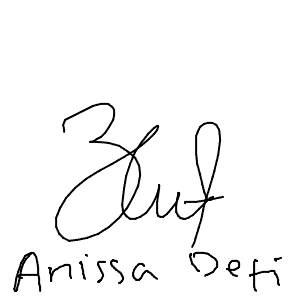 Anissa Defi